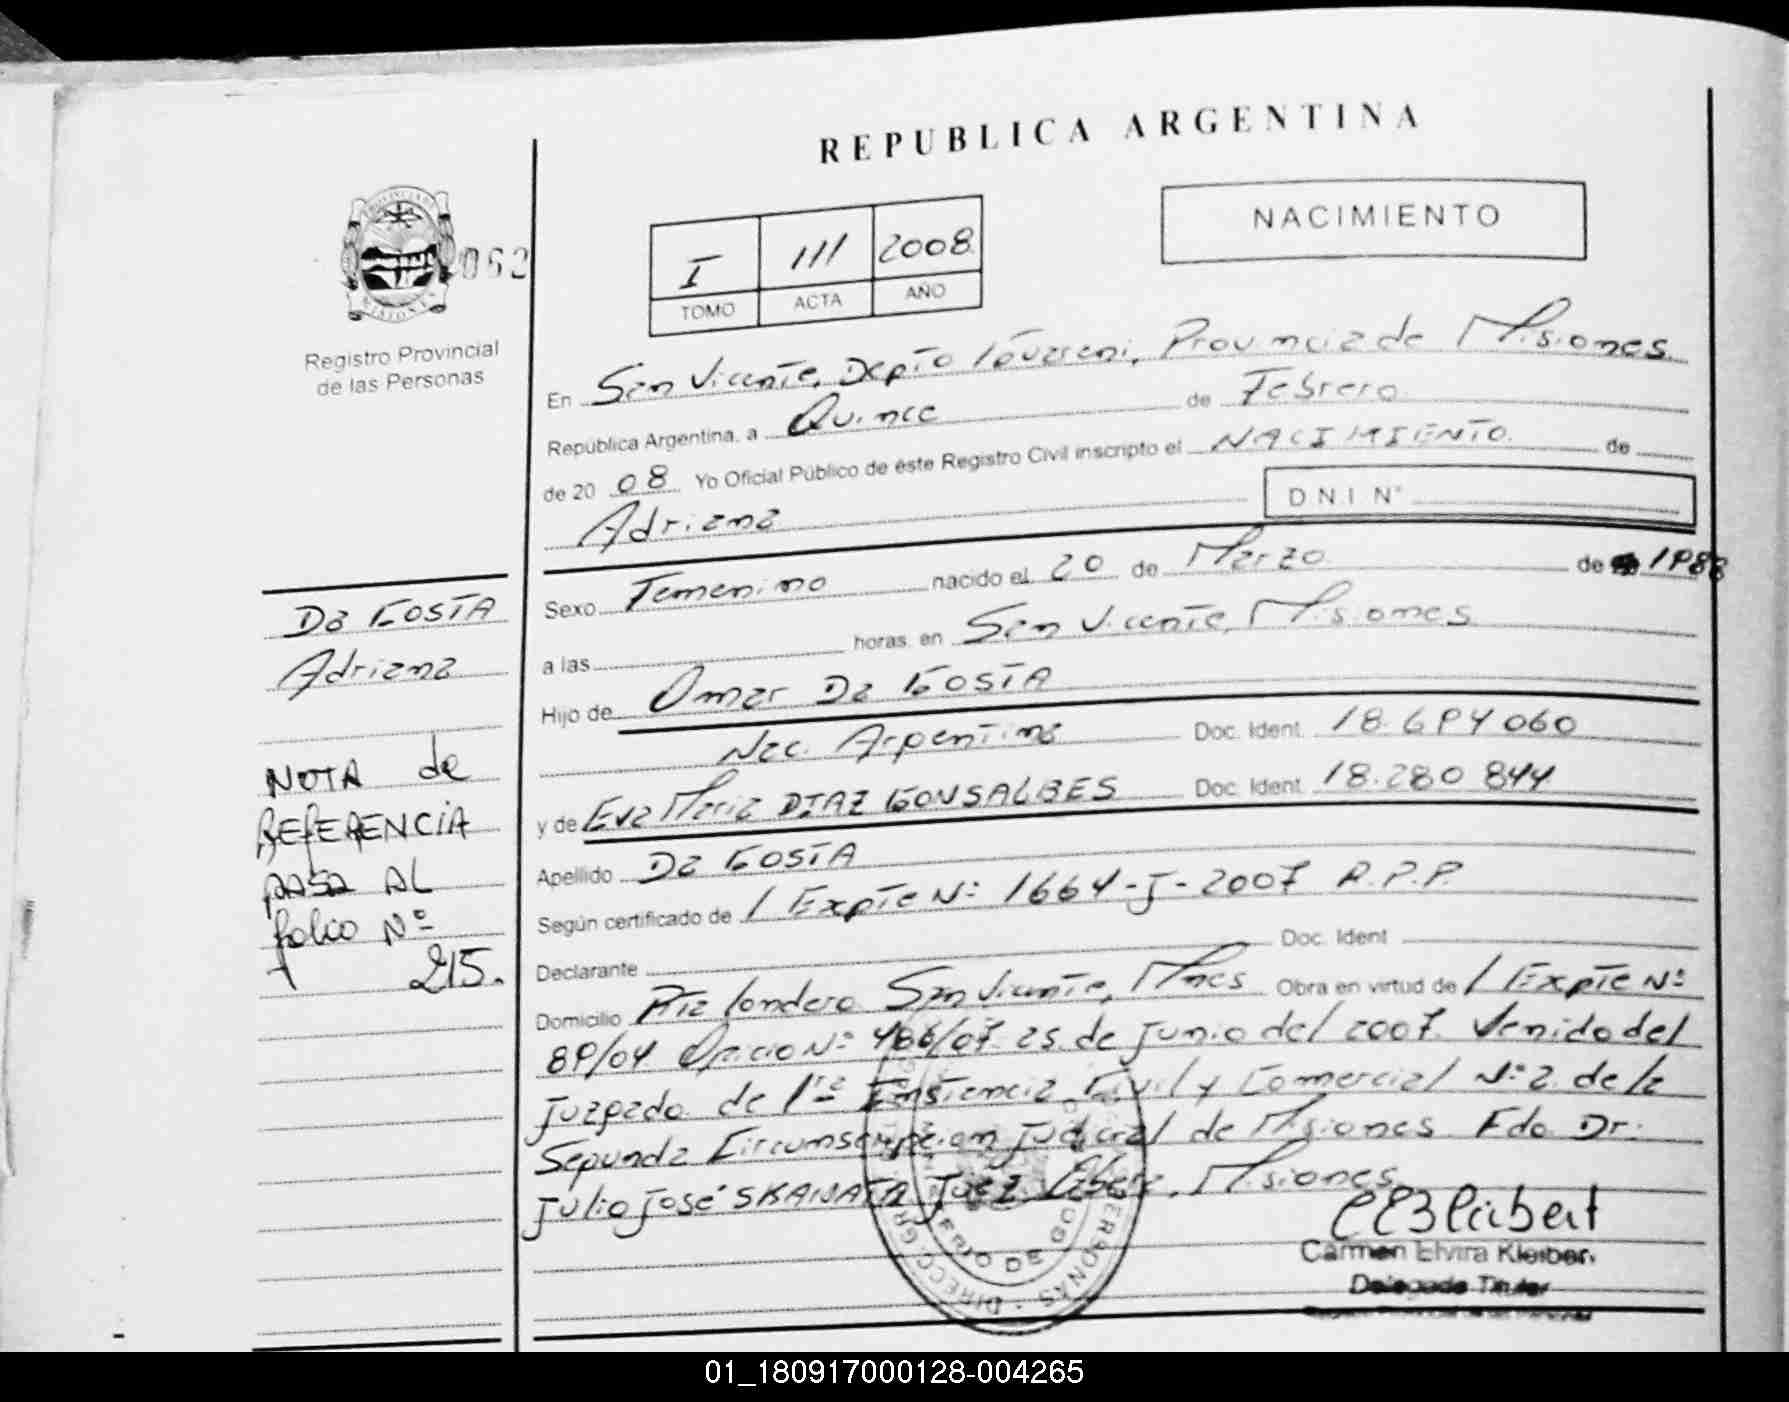 REPUBLICA ARGENTINA
NACIMIENTO
I 111 2008
TOMO ACTA AÑO
062
Registro Provincial
de las Personas
En San Vicente, Depto Guarani, Provincia de Misiones
República Argentina, a Quince de Febrero
de 2008 Yo Oficial Público de éste Registro Civil inscripto el NACIMIENTO de
Adriana D.N.I N°
Sexo Femenino nacido el 20 de Marzo de 1988
a las horas, en San Vicente, Misiones
Hijo de Omar Da COSTA
Nac. Argentina Doc. Ident. 18.694 060
y de Eva Maria DIAZ GONSALBES Doc. Ident. 18.280 844
Apellido Da COSTA
Según certificado de / Expte N: 1664-J-2007 R.P.P.
Declarante Doc. Ident
Domicilio Londero San Vicente, Mnes Obra en virtud de / Expte N:
89/04 Oficio N: 486/07. 25 de Junio del 2007. Venido del
Juzgado de 1ra Instancia Civil y Comercial N: 2 de la
Segunda Circunscripcion Judicial de Misiones Fdo Dr.
Julio José Juez Obera, Misiones
Carmen Elvira Kleiber
Delegada Titular
Da COSTA
Adriana
NOTA de
REFERENCIA
PASA AL
folio N°
215.
01_180917000128-004265